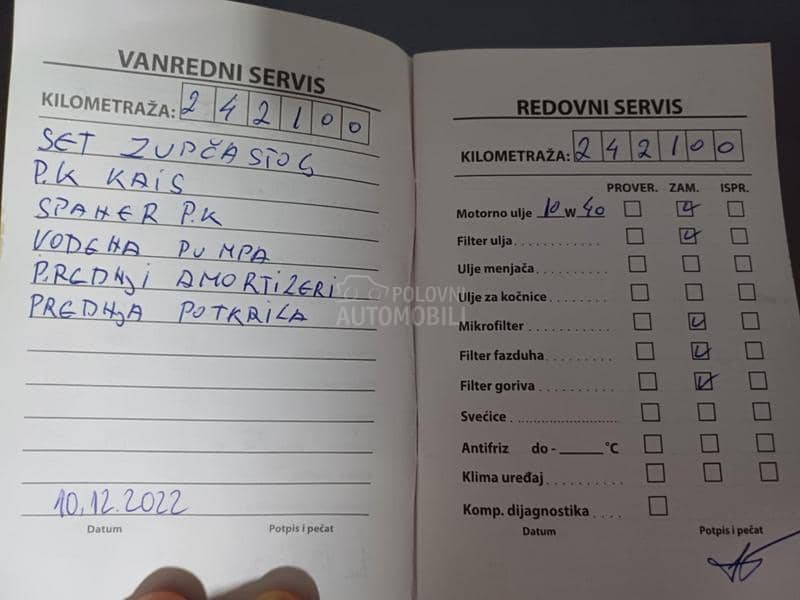 VANREDNI SERVIS
KILOMETRAŽA: 2 4 2 1 0 0
SET ZUPČASTOG
P.K KAIS
SPANER P.K
VODENA PUMPA
PREDNJI AMORTIZERI
PREDNJA POTKRILA
10.12.2022
Datum Potpis i pečat
REDOVNI SERVIS
KILOMETRAŽA: 2 4 2 1 0 0
PROVER. ZAM. ISPR.
Motorno ulje 10 W 40
Filter ulja
Ulje menjača
Ulje za kočnice
Mikrofilter
Filter fazduha
Filter goriva
Svećice
Antifriz do - °C
Klima uređaj
Komp. dijagnostika
Datum Potpis i pečat
POLOVNI
AUTOMOBILI